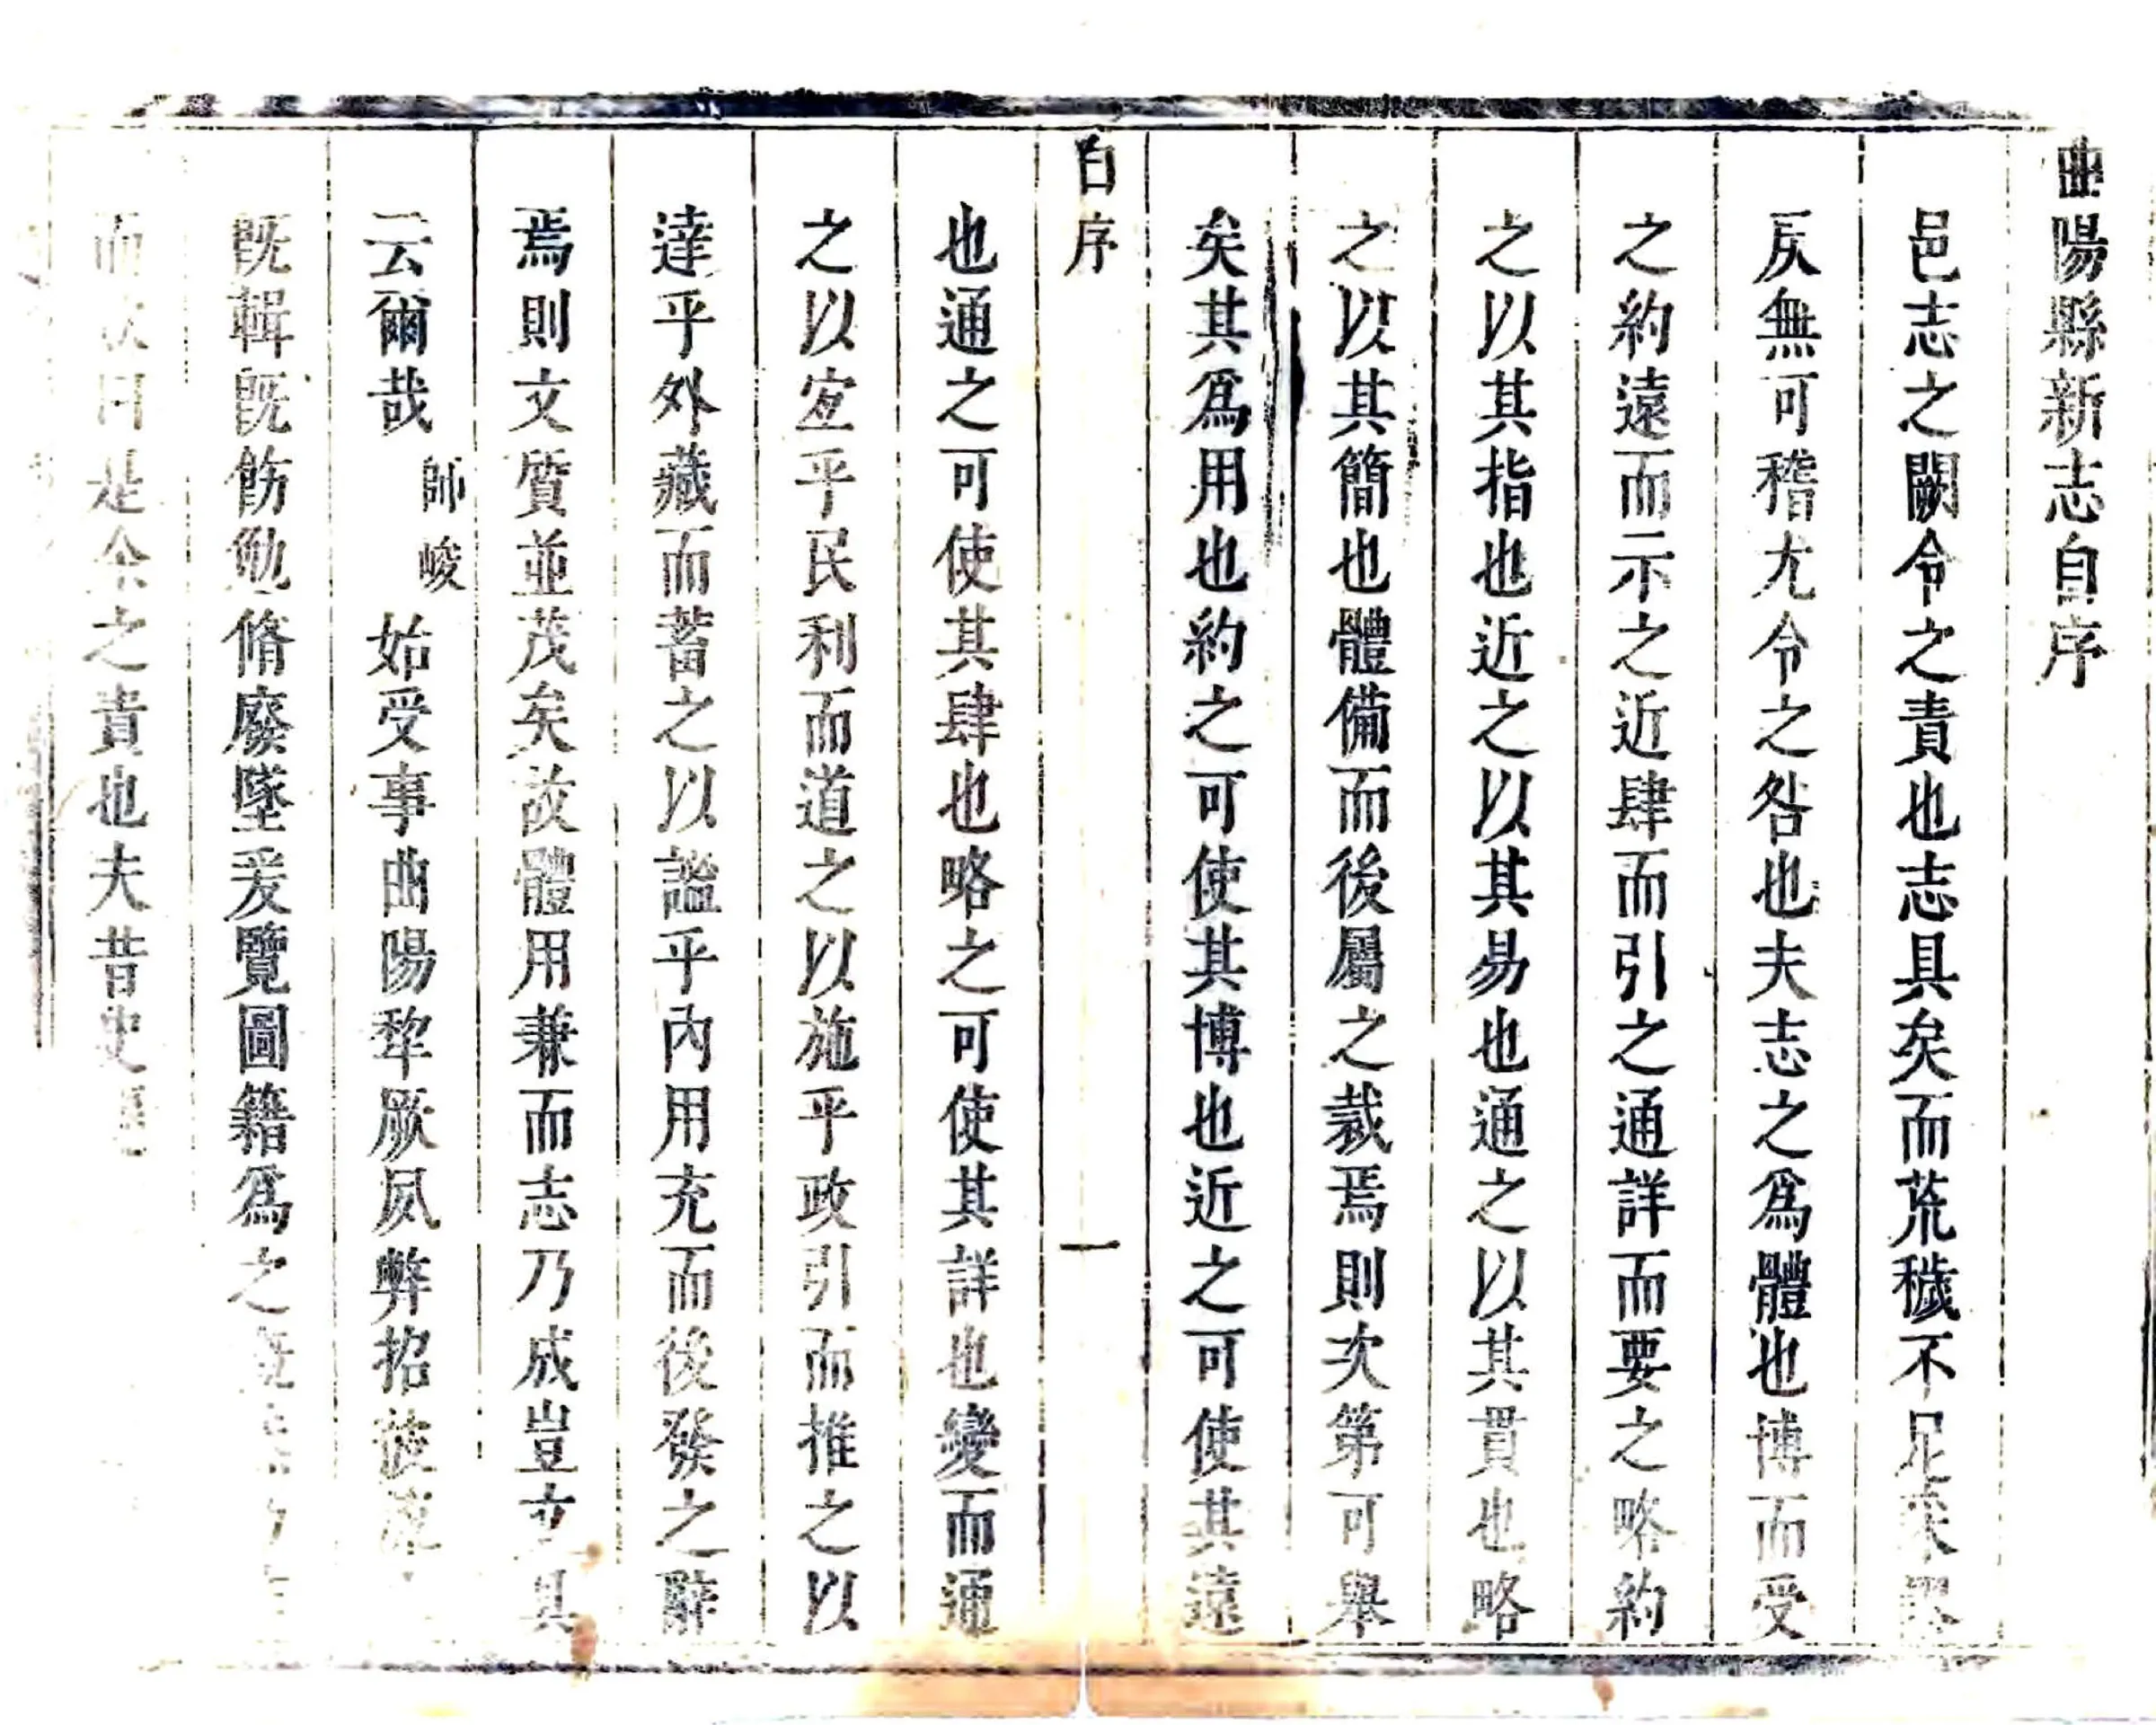 曲陽縣新志自序
邑志之闕令之責也志具矣而荒穢不足
仄無可稽尢令之咎也夫志之爲體也博而受
之約遠而示之近肆而引之通詳而要之略約
之以其指也近之以其易也通之以其貫也略
之以其簡也體備而後屬之裁焉則次第可舉
矣其爲用也約之可使其博也近之可使其遠
自序
一
也通之可使其肆也略之可使其詳也變而通
之以宜乎民利而道之以施乎政引而推之以
達乎外藏而蓄之以謐乎內用充而後發之辭
焉則文質並茂矣故體用兼而志乃成豈具
云爾哉師峻始受事曲陽犂厥夙弊招
旣輯旣飭勉脩廢墜爰覽圖籍爲之
而曰是余之責也夫昔史